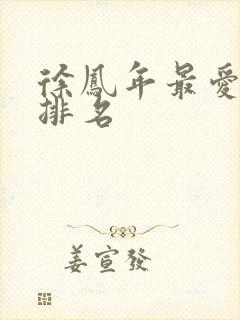 徐鳳年最愛
排名
姜宣發